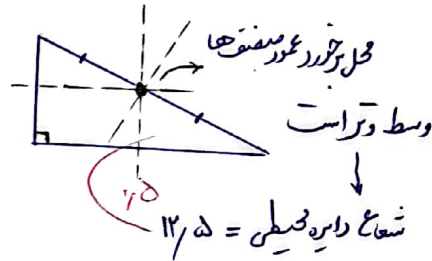 محل برخورد عمود منصف‌ها
وسط وتر است
شعاع دایره محیطی = ۱۲٫۵